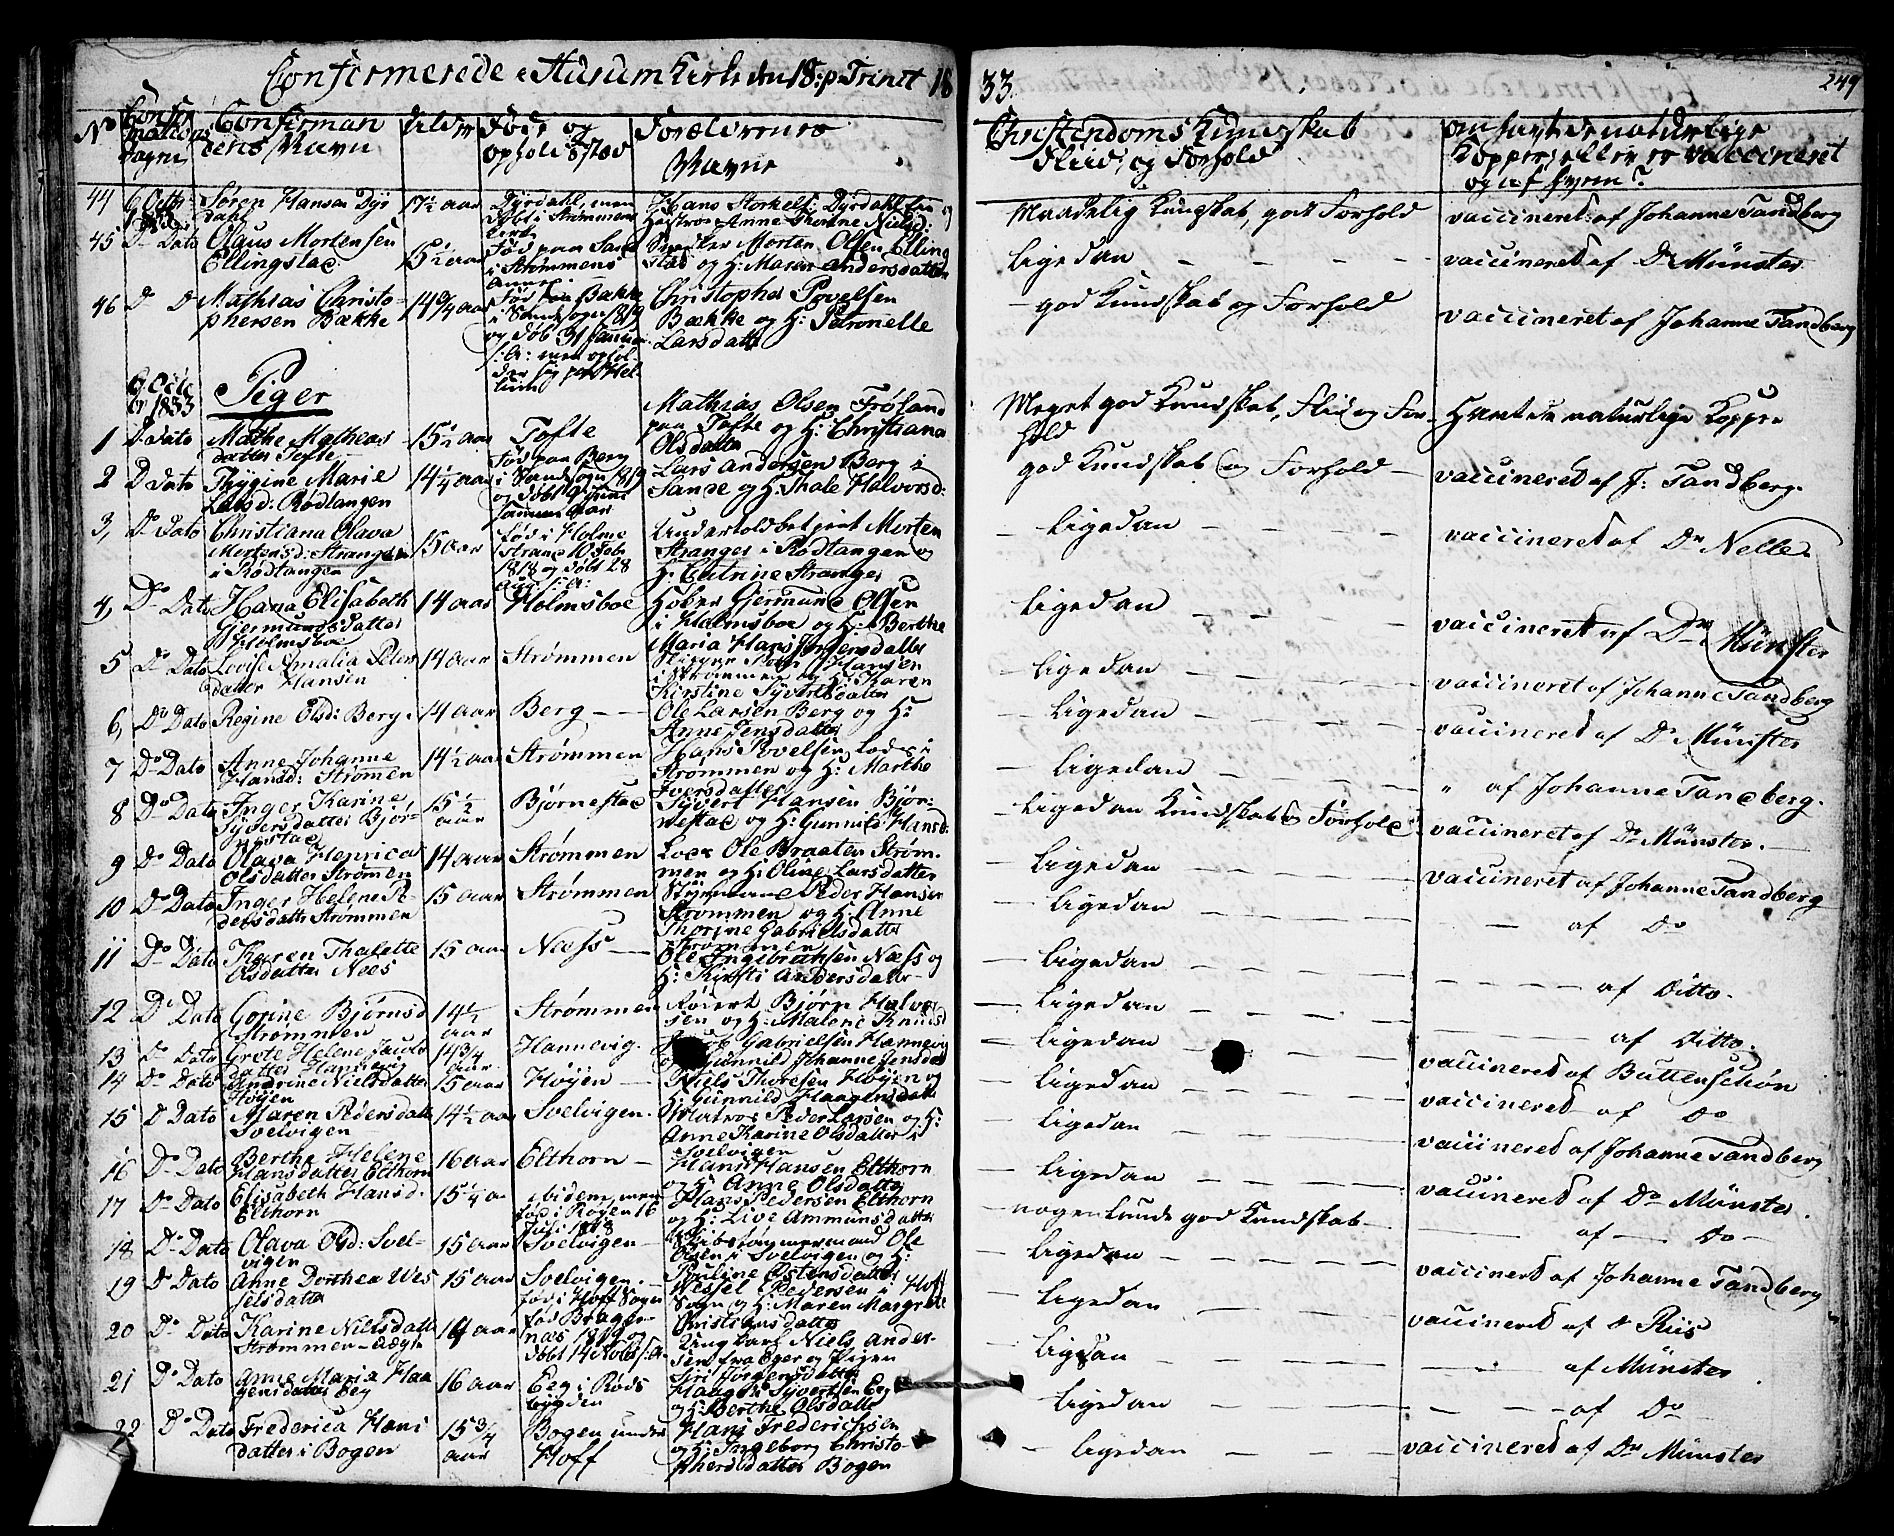 Confirmerede i Hurum Kirke den 18: p: Trinit 1833.
249
No
Confirmations Dagen
Confirmandens Navn
Alder
Føde og Opholdssted
Forældrenes Navne
Christendoms Kundskab
Flid, og Forhold
om havt de naturlige
Kopper, eller er vaccineret
og af hvem?
44 6 Octb: 1833 Søren Hansen Dyrdahl 17½ aar
Hans Torkels: Dyrdahl
Maadelig Kundskab, godt Forhold
vaccineret af Johanne Tandberg
45 Do Dato Olaus Mortensen Ellingstad 15½ aar
Morten Olsen Ellingstad og H: Maren Andersdatter
ligedan
vaccineret af Dr Münster
46 D D Mathias Christophersen Bække 14¾ aar
Christopher Povelsen
Bække og H: Petronelle
Larsdatter
god Kundskab og Forhold
vaccineret af Johanne Tandberg
6 Octbr 1833
Piger
1 D Dato Mathe Mathiasdatter Tofte 15½ aar Tofte
Mathias Olsen Frøland
paa Tofte og H: Christiana
Olsdatter
Meget god Kundskab, Flid og Forhold
Havt de naturlige Kopper
2 D Dato Thygine Marie Larsd: Rødtangen 14¼ aar
Lars Andersen Berg i
Sande og H: Thale Halvorsd:
god Kundskab og Forhold
vaccineret af J: Tandberg.
3, Do Dato Christiana Olava Mortensd: Stranger i Rødtangen 15 aar
fød i Holmestrand 10 Feb 1818 og døbt 28 Aug: s: A:
Undertoldbetjent Morten
Stranger i Rødtangen og
H: Catrine Stranger
ligedan
vaccineret af Dr Nelle
4, Do Dato Hana Elisabeth Germundsdatter Holmsboe 14 aar Holmsboe
Germund Olsen
i Holmsboe og H: Berthe
Maria Hans Jørgensdatter
ligedan
vaccineret af Dr Münster
5 Do Dato Lovise Amalia Petersdatter Hansen 14 aar Strømmen
Hansen
i Strømmen og H: Karen
Kirstine Syvertsdatter
ligedan
vaccineret af Johanne Tandberg
6, Do Dato Regine Olsd: Berg 14 aar Berg
Ole Larsen Berg og H:
Anne Jensdatter
ligedan
vaccineret af Dr Münster
7 Do Dato Anne Johanne Hansd: Strømen 14½ aar Strømmen
Hans Povelsen Lods i
Strømmen og H: Marthe
Iversdatter
ligedan
" af Johanne Tandberg.
8 Do Dato Inger Karine Syversdatter Bjørnestad 15½ aar Bjørnestad
Syvert Hansen Bjørnestad og H: Gunnild Hansd:
ligedan Kundskab og Forhold
vaccineret af Dr Münster.
9 Do Dato Olava Henrica Olsdatter Strømen 14 aar Strømmen
Lods Ole Braaten Strømmen og H: Oline Larsdatter
ligedan
vaccineret af Johanne Tandberg
10 Do Dato Inger Helene Pedersdatter Strømmen 15 aar Strømmen
Styrmand Peder Hansen
Strømmen og H: Anne
Thorine Gabrielsdatter
Strømmen
ligedan
af Do
11 Do Dato Karen Thalette Olsdatter Næes 15 aar Næss
Ole Ingebrethsen Næss og
H: Kirsti Andersdatter
ligedan
af Ditto.
12 Do Dato Gorine Bjørnsd Strømmen 14½ aar Strømmen
Bjørn Halvorsen og H: Malene Knudsd
ligedan
af Ditto.
13 Do Dato Grete Helene Jacobsdatter Hannevig 14¾ aar Hannevig.
Gabrielsen Hannevig
og Gunnild Johanne Jensdatter
ligedan
vaccineret af Buttenschøn
14 Do Dato Andrine Nielsdatter Høyen 15 aar Høyen
Niels Thoresen Høyen og
H: Gunnild Haagensdatter
ligedan
vaccineret af Do
15 D Dato Maren Pedersdatter Svelvigen 14½ aar Svelvigen.
Matros Peder Larsen og H:
Anne Karine Olsdatter i
Svelvigen
ligedan
vaccineret af Johanne Tandberg
16 Do Dato Berthe Helene Hansdatter Elthorn 16 aar Elthorn
Hans Hansen Elthorn
og H: Anne Olsdatter
ligedan
vaccineret af Dr Münster.
17 Do Dato Elisabeth Hansd. Elthorn 15¼ a ibidem, men fød i Røgen 16 Juli 1818
Hans Pedersen Elthorn
og H: Live Ammunsdatter
nogenlunde god Kundskab
af Do
18 Do Dato Olava Olsd: Svelvigen 15 aar Svelvigen
Skibstømmermand Ole
Olsen i Svelvigen og H:
Pouline Østensdatter
ligedan
vaccineret af Johanne Tandberg
19 Do Dato Anne Dorthea Wesselsdatter 15 aar Svelvigen. fød i Hoff Sogn
Wessel Pedersen i Hoff
Sogn og H: Maren Margrete
Christiansdatter
ligedan
vaccineret af D Riis
20 Do Dato Karine Nielsdatter Strømmen 14 aar
fød Bragernæs 1819 og døbt 14 Novbr s: A:
Ungkarl Niels Andersen fra Eger og Pigen
Siri Jørgensdatter
ligedan
af Münster
21 Do Dato Anne Maria Haagensdatter Eeg 16 aar Eeg i Rødbygden
Haagen Syvertsen Eeg
og H: Berthe Olsdatter
ligedan
af Do
22 Do Dato Frederica Hansdatter i Bogen 15¾ aar Bogen under Hoff
Hans Frederichsen
og H: Ingeborg Christophersdatter Bogen
ligedan
vaccineret af Dr Münster